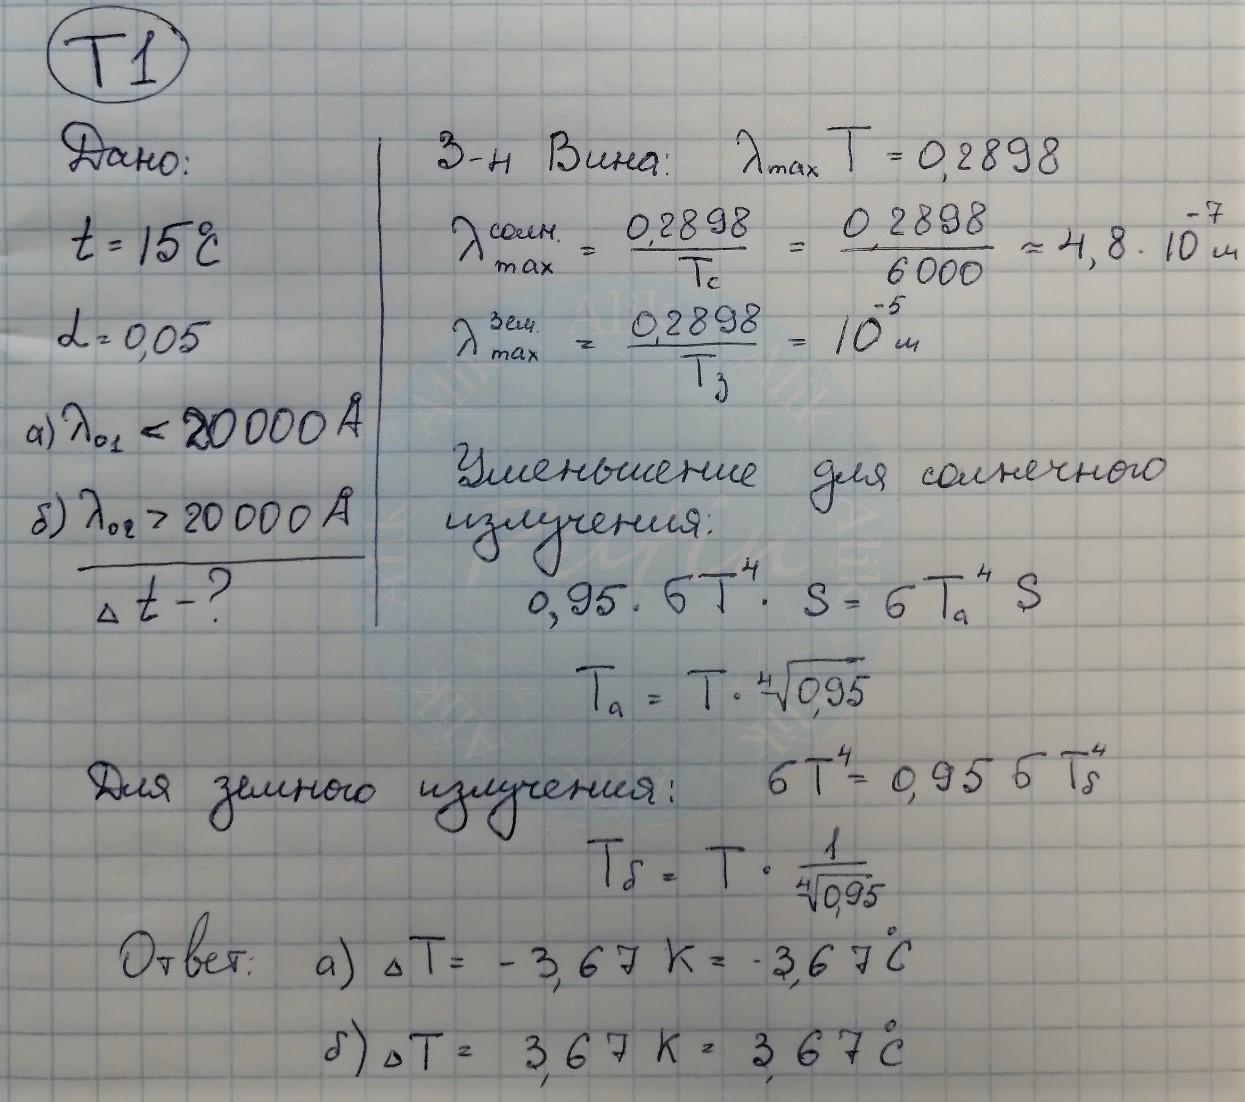 T1
Дано:
t = 15°C
α = 0,05
а) λ₀₁ < 20000 Å
б) λ₀₂ > 20000 Å
Δt - ?
З-н Вина: λmax T = 0,2898
λmax солн. = 0,2898/Tс = 0,2898/6000 ≈ 4,8 · 10⁻⁷ м
λmax зем. = 0,2898/Tз = 10⁻⁵ м
Уменьшение для солнечного
излучения:
0,95 · бT⁴ · S = бTа⁴ S
Tа = T · ⁴√0,95
Для земного излучения: бT⁴ = 0,95 бTб⁴
Tб = T · 1/⁴√0,95
Ответ: а) ΔT = -3,67 K = -3,67°C
б) ΔT = 3,67 K = 3,67°C
Alik
Alik
Alik
Alik
Alik
Alik
Alik